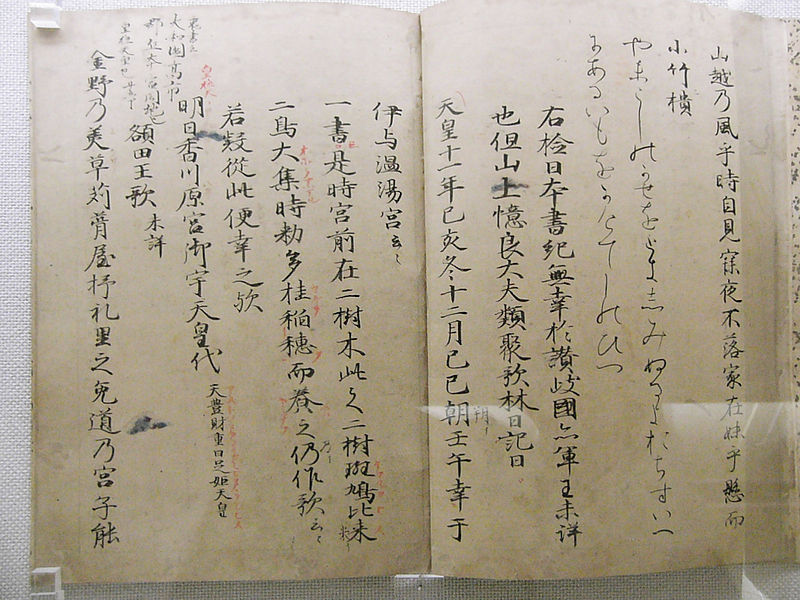 山越乃風乎時自見寐夜不落家在妹乎懸而
小竹樻
やまこしのかせをときしみぬるよおちすいへ
にあるいもをかけてしのひつ
右撿日本書紀無幸於讃岐國亦軍王未詳
也但山上憶良大夫類聚歌林日記曰
天皇十一年己亥冬十二月己巳朝壬午幸于
朔
伊与温湯宮云々
一書是時宮前在二樹木此之二樹斑鳩比米
二鳥大集時勅多桂稲穂而養之仍作歌云々
若疑從此便幸之歟
明日香川原宮御宇天皇代 天豊財重日足姫天皇
大和國高市
額田王歌 未詳
金野乃美草苅葺屋杼礼里之兎道乃宮子能